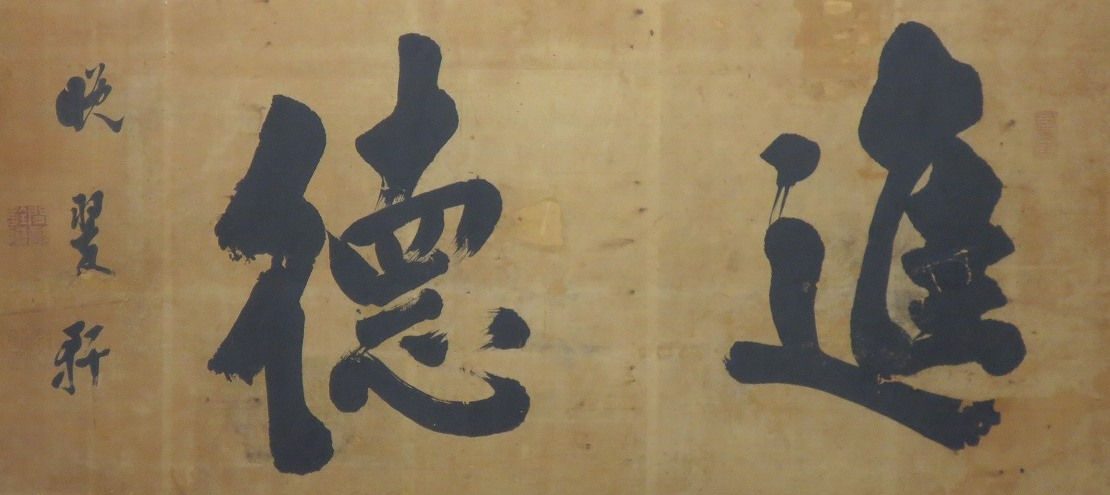 進德
晚翠軒